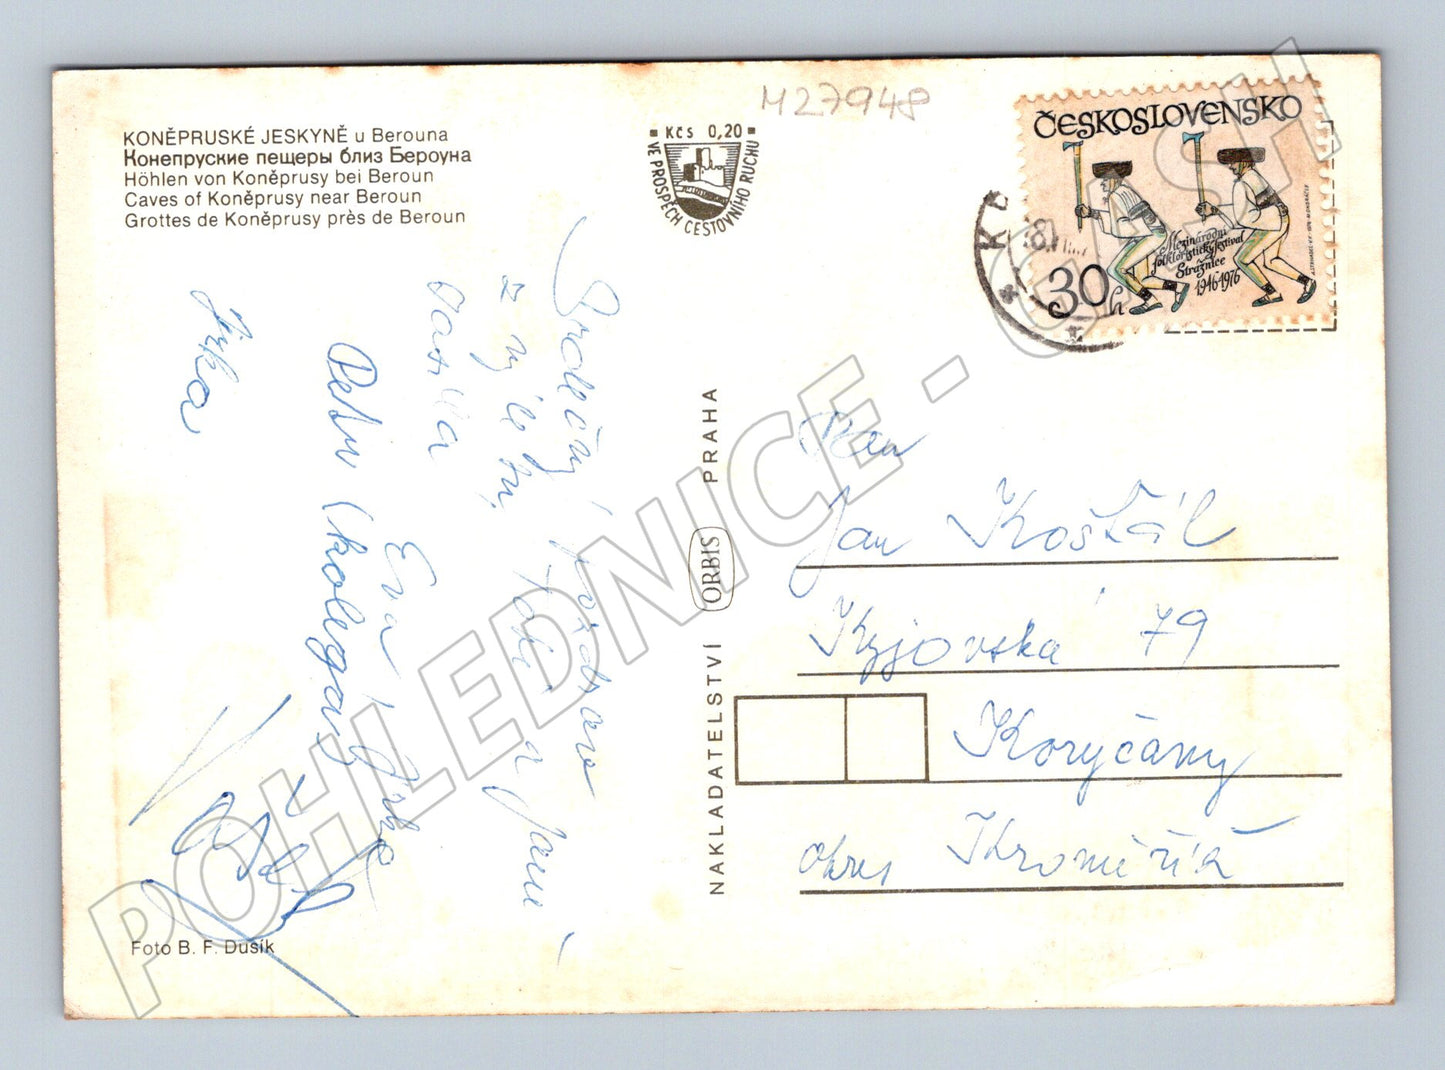 KONĚPRUSKÉ JESKYNĚ u Berouna
Конепруские пещеры близ Бероуна
Höhlen von Koněprusy bei Beroun
Caves of Koněprusy near Beroun
Grottes de Koněprusy près de Beroun
M27948
Kčs 0,20
VE PROSPĚCH CESTOVNÍHO RUCHU
ČESKOSLOVENSKO
Mezinárodní
folkloristický festival
Strážnice
1946-1976
30 h
Srdečný pozdrav
z výletu
Eva
Petr (kolegové)
Jirka
NAKLADATELSTVÍ ORBIS PRAHA
Pan
Jan Košťál
Kyjovská 79
Koryčany
okres Kroměříž
Foto B. F. Dusík
POHLEDNICE - CASH